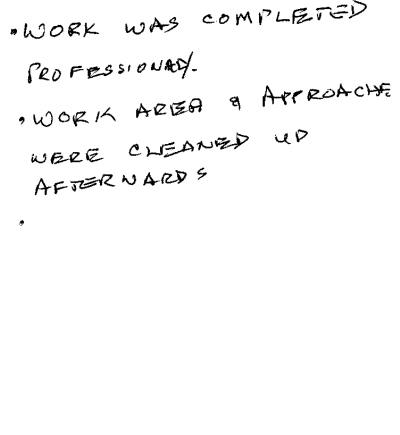 • WORK WAS COMPLETED
PROFESSIONALLY.
• WORK AREA & APPROACHE
WERE CLEANED UP
AFTERWARDS
•